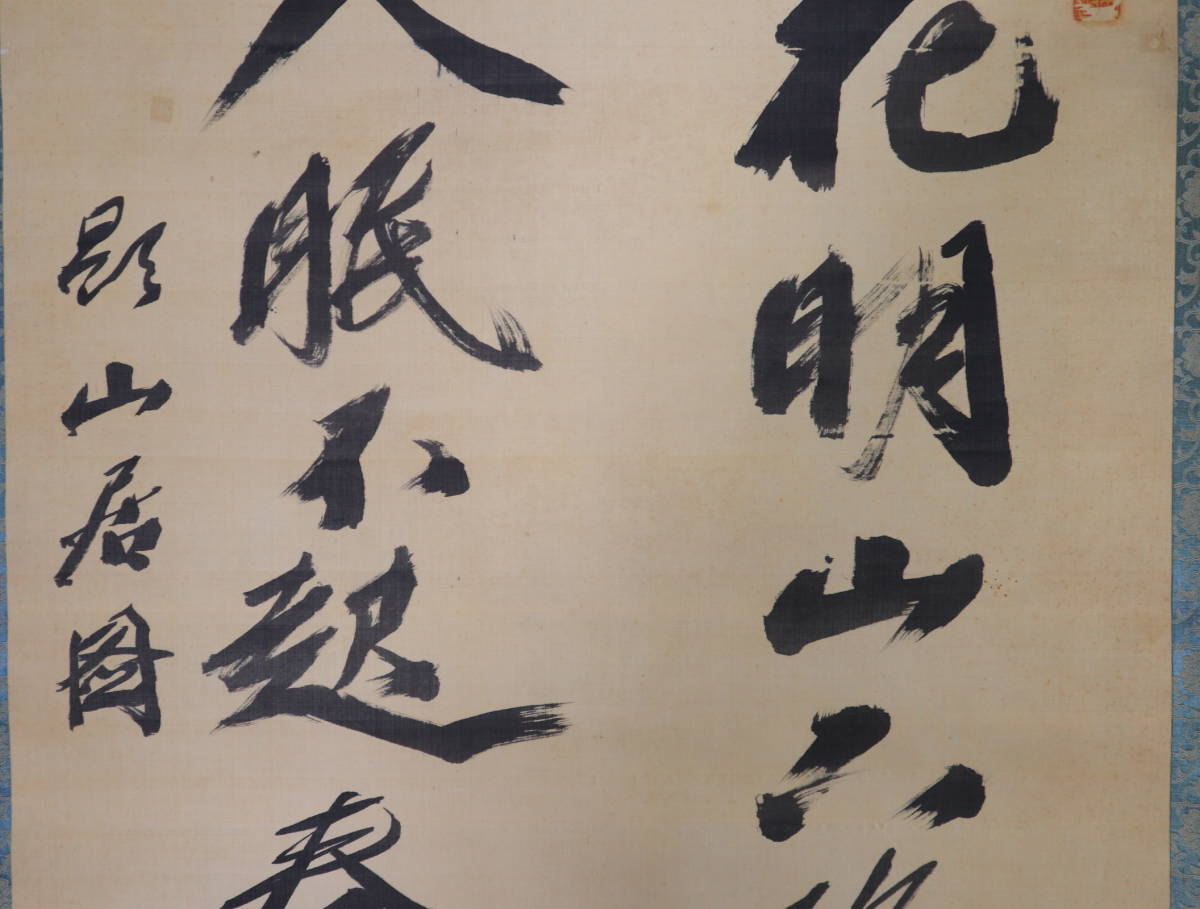 花明山下
人眠不起春
題山居圖